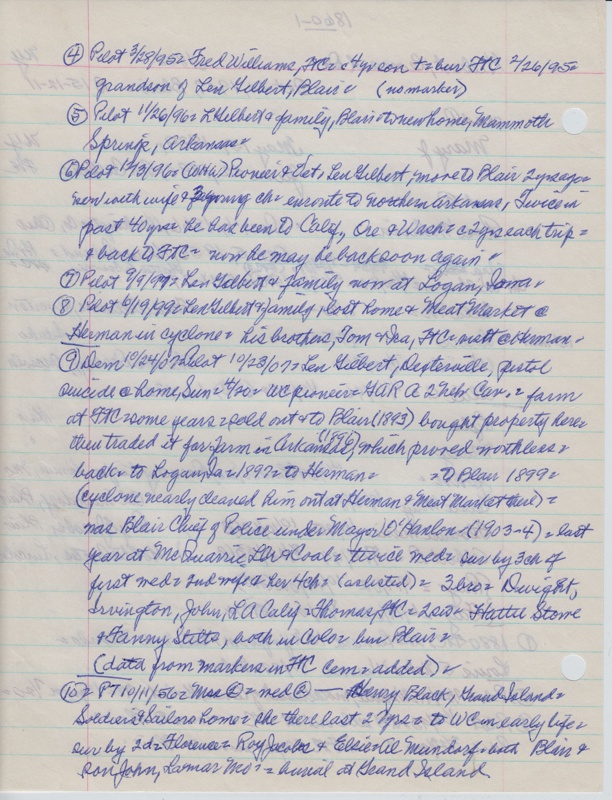 1860-1
④ Pilot 3/28/95= Fred Williams, FC= 4yr son += bur FTC 2/26/95=
grandson of Len Gilbert, Blair= (no marker)
⑤ Pilot 11/26/96= L Gilbert & family, Blair= to new home, Mammoth
Springs, Arkansas=
⑥ Pilot Pioneer & Vet, Len Gilbert, move to Blair 2yrs ago=
now with wife & 3 young ch= enroute to northern Arkansas, Twice in
past 40yrs he has been to Calif, Ore & Wash= 2yrs each trip=
& back to FTC= now he may be back soon again=
⑦ Pilot 9/9/97= Len Gilbert & family now at Logan, Iowa=
⑧ Pilot 6/19/99= Len Gilbert & family, lost home & Meat Market @
Herman in cyclone= his brothers, Tom & Ira, FTC= @ Herman=
⑨ Dem 10/24/07= Pilot 10/23/07= Len Gilbert, pistol
suicide @ home, Sun= WC pioneer= GAR A 2 Neb Cav.= farm
at FTC= some years= sold out & to Blair (1893) bought property here=
then traded it for farm in Arkansas, (1896) which proved worthless=
back= to Logan, Ia= 1897= to Herman= =to Blair 1899=
(cyclone nearly cleaned him out at Herman & Meat Market there)=
Blair Chief of Police under Mayor O'Hanlon (1903-4)= last
year at McQuarrie Lbr & Coal= twice med= sur by 3ch of
first med= 2nd wife & her 4ch= (as listed)= 3 bro= Dwight,
Irvington, John, LA Calif= Thomas, FTC= 2 sis= Hattie Stowe
& Fanny Stitts, both in Colo= bur Blair=
(data from markers in FTC Cem= added)=
⑩= PT 10/11/56= Mrs @= med @ — Henry Black, Grand Island=
Soldiers & Sailors home= she there last 2 yrs= to WC in early life=
sur by 2d= Florence= Roy Jacobs & Elsie= Al Mundorf= both Blair &
son John, Lamar Mo= = burial at Grand Island